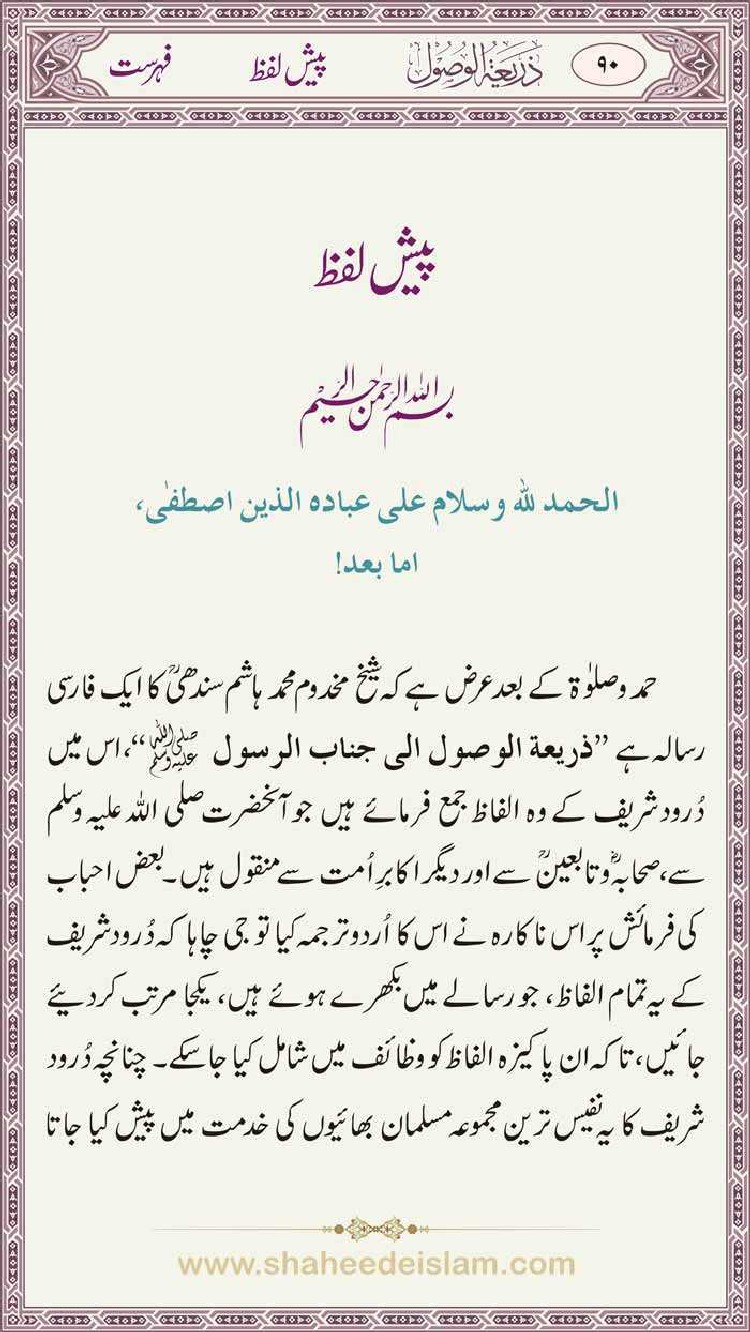 ۹۰ ذریعۃ الوصول پیش لفظ فہرست
پیش لفظ
بسم اللہ الرحمٰن الرحیم
الحمد للہ و سلام علی عبادہ الذین اصطفٰی،
اما بعد!
حمد و صلوٰۃ کے بعد عرض ہے کہ شیخ مخدوم محمد ہاشم سندھیؒ کا ایک فارسی
رسالہ ہے ”ذریعة الوصول الی جناب الرسول ﷺ“، اس میں
دُرود شریف کے وہ الفاظ جمع فرمائے ہیں جو آنحضرت صلی اللہ علیہ وسلم
سے، صحابہؓ و تابعینؒ سے اور دیگر اکابرِ اُمت سے منقول ہیں۔ بعض احباب
کی فرمائش پر اس ناکارہ نے اس کا اُردو ترجمہ کیا تو جی چاہا کہ دُرود شریف
کے یہ تمام الفاظ، جو رسالے میں بکھرے ہوئے ہیں، یکجا مرتب کردیئے
جائیں، تاکہ ان پاکیزہ الفاظ کو وظائف میں شامل کیا جاسکے۔ چنانچہ دُرود
شریف کا یہ نفیس ترین مجموعہ مسلمان بھائیوں کی خدمت میں پیش کیا جاتا
www.shaheedeislam.com